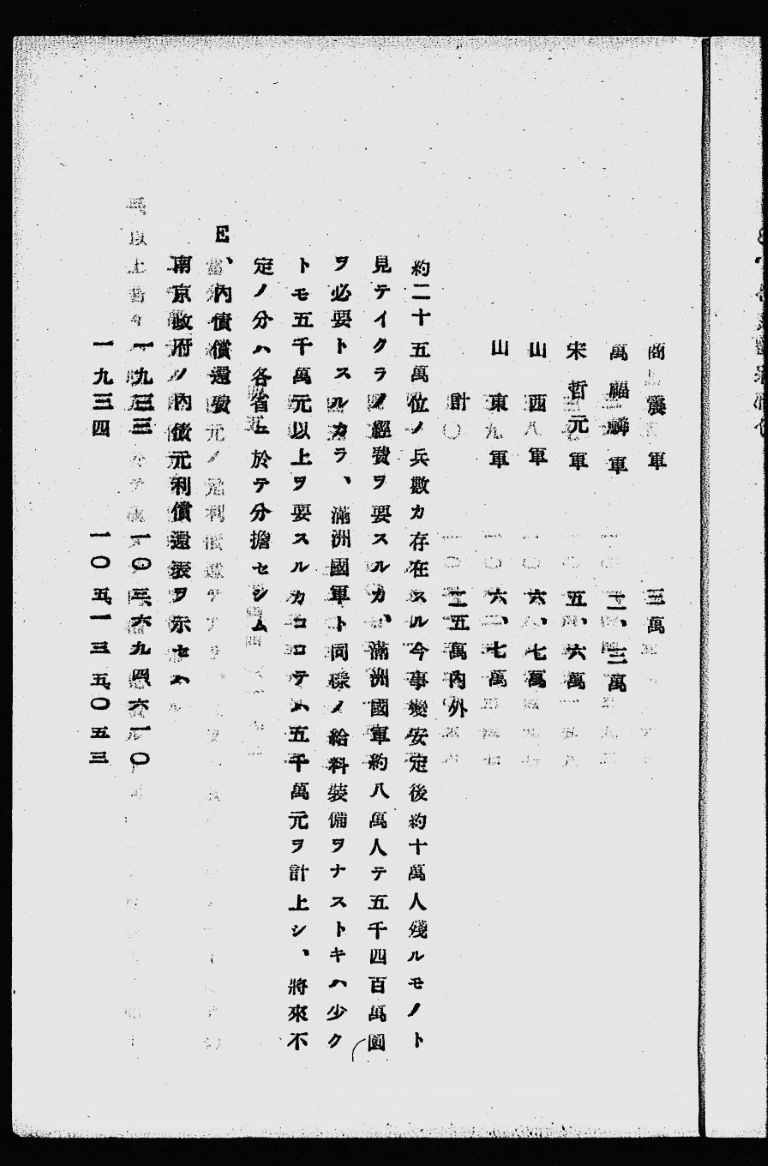 商震軍　三萬
萬福麟軍　二、三萬
宋哲元軍　五、六萬
山西軍　六、七萬
山東軍　六、七萬
計　二五萬內外
約二十五萬位ノ兵數カ存在スル今事變安定後約十萬人殘ルモノト
見テイクラノ經費ヲ要スルカ、滿洲國軍約八萬人テ五千四百萬圓
ヲ必要トスルカラ、滿洲國軍ト同樣ノ給料裝備ヲナストキハ少ク
トモ五千萬元以上ヲ要スルカココテハ五千萬元ヲ計上シ、將來不
定ノ分ハ各省ニ於テ分擔セシム
E、內債償還費
南京政府ノ內債元利償還表ヲ示セハ
一九三三　一〇三、六九四六一〇
一九三四　一〇五、一三五〇五三